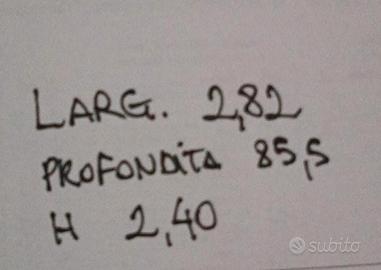 LARG. 2,82
PROFONDITA 85,5
H 2,40
subito